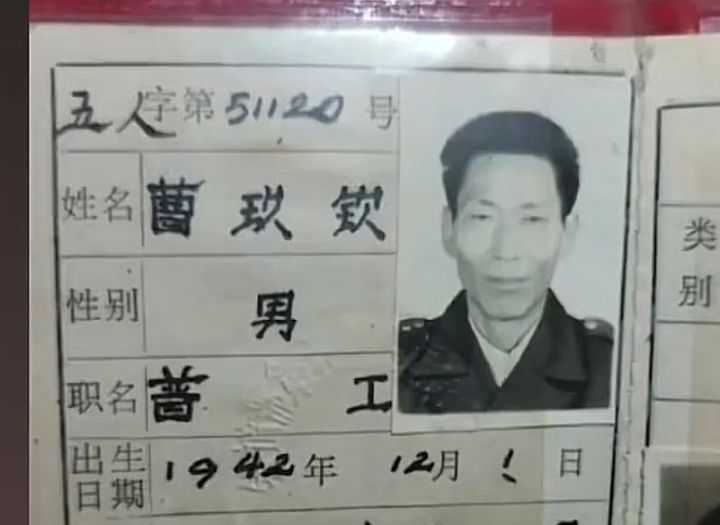 五人字第51120号
姓名 曹玖钦
性别 男
职名 普工
出生日期 1942年12月1日
类别